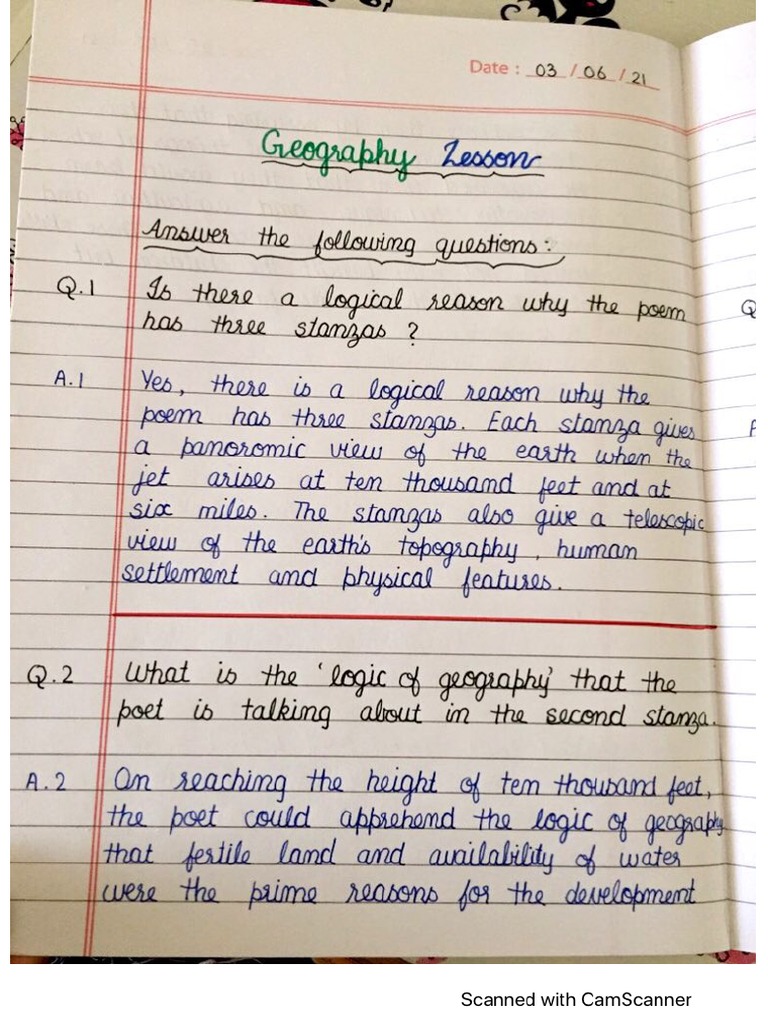 Date : 03 / 06 / 21
Geography Lesson
Answer the following questions:
Q.1 Is there a logical reason why the poem
has three stanzas ?
A.1 Yes, there is a logical reason why the
poem has three stanzas. Each stanza gives
a panoromic view of the earth when the
jet arises at ten thousand feet and at
six miles. The stanzas also give a telescopic
view of the earth's topography, human
settlement and physical features.
Q.2 What is the 'logic of geography' that the
poet is talking about in the second stanza.
A.2 On reaching the height of ten thousand feet,
the poet could apprehend the logic of geography
that fertile land and availability of water
were the prime reasons for the development
Q
Scanned with CamScanner